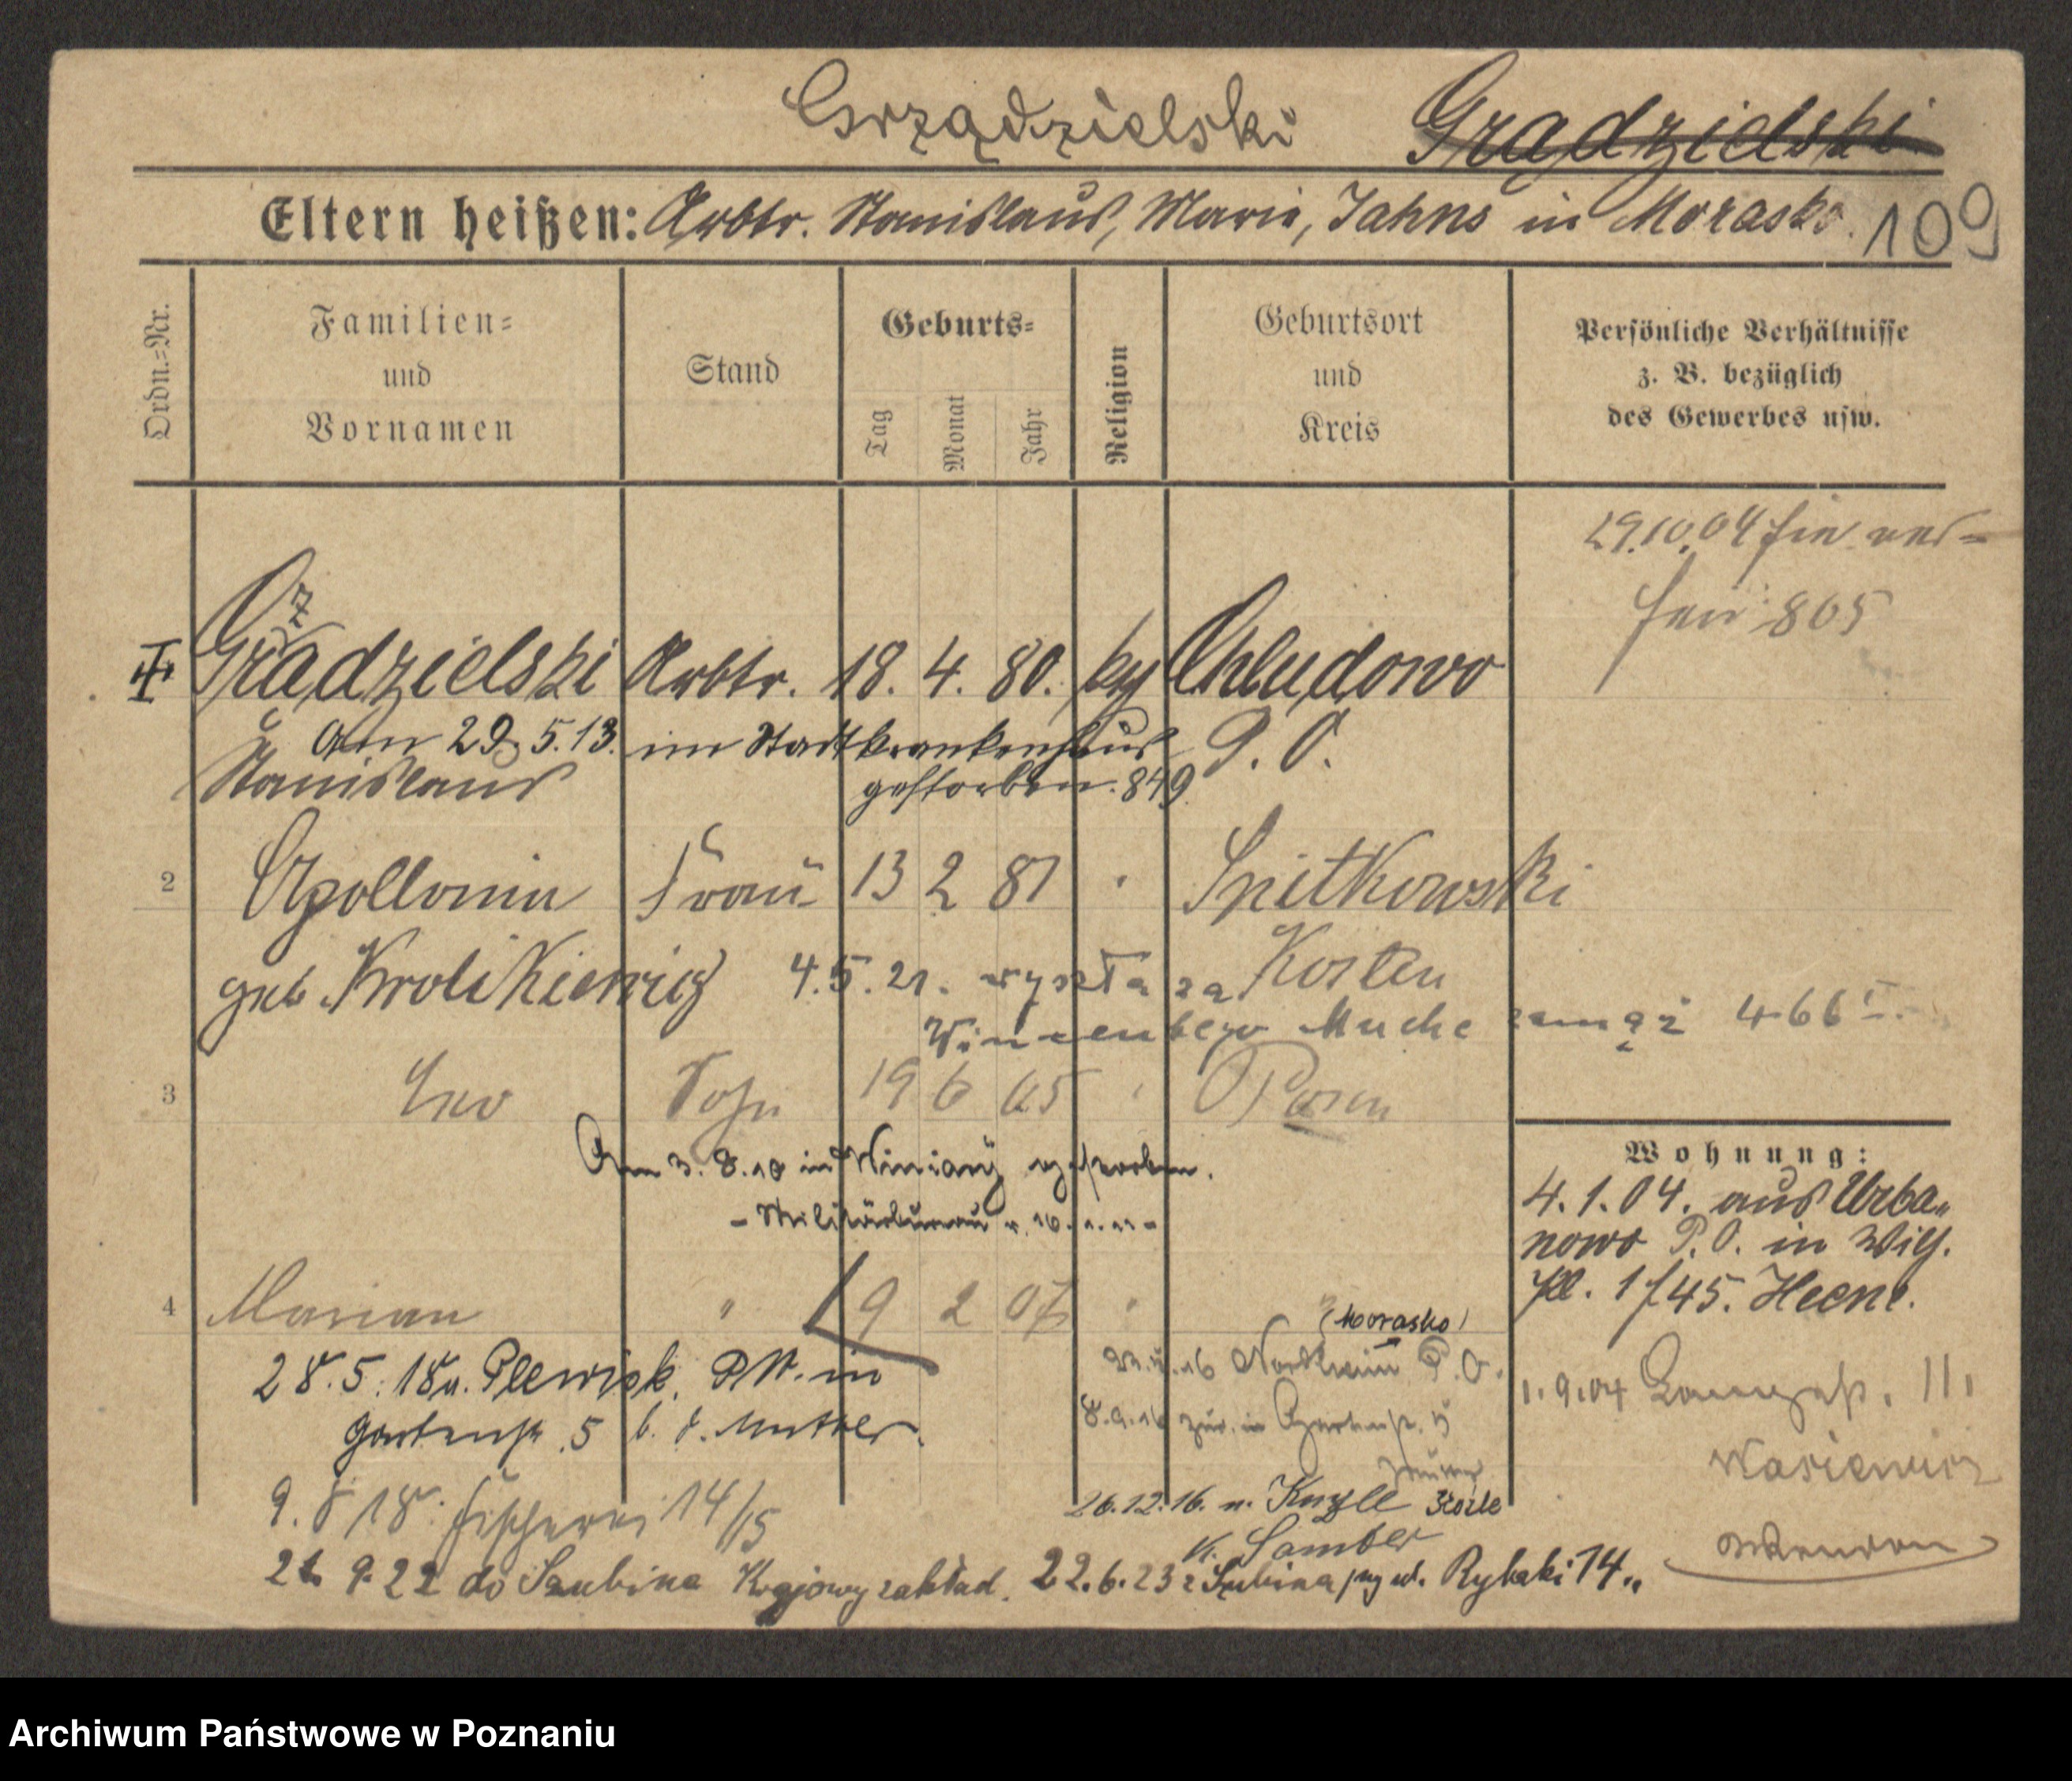 Grządzielski Gradzielski
Eltern heißen: Arbtr. Stanislaus, Marie, Jahns in Morasko. 109
Ordn.=Nr.
Familien=
und
Vornamen
Stand
Geburts=
Tag
Monat
Jahr
Religion
Geburtsort
und
Kreis
Persönliche Verhältnisse
z. B. bezüglich
des Gewerbes usw.
29.10.04
865
Grządzielski Arbtr. 18. 4. 80. Chludowo
Am 29.5.13. im Stadtkrankenhaus P. O.
Stanislaus gestorben. 849.
2 Apollonia Frau 13 2 81 Snitkowski
geb. Krolikiewicz Kosten
4.5.21. wyszła za
Wincentego Muche zamąż 466
3 Leo Sohn 19 6 05 Posen
Am 3.8.10 in Winiary gestorben.
- Militärbureau
4 Marian " 9 2 07 "
Wohnung:
4.1.04. aus Urba=
nowo P.O. in Wilh.
Pl. 1
1.9.04 Langestr. 11,
(Morasko)
16 Nordheim P.O.
8.9.16 zur. in Gartenstr. 5
26.12.16. n.
K. Samter
28.5.18 v. Plewisk. P.W. in
Gartenstr. 5 b. d. Mutter.
9. 8 18. Fischerei 14/15
9.22 do Szubina Krajowy zakład. 22.6.23 z Szubina ul. Rybaki 14.
Archiwum Państwowe w Poznaniu